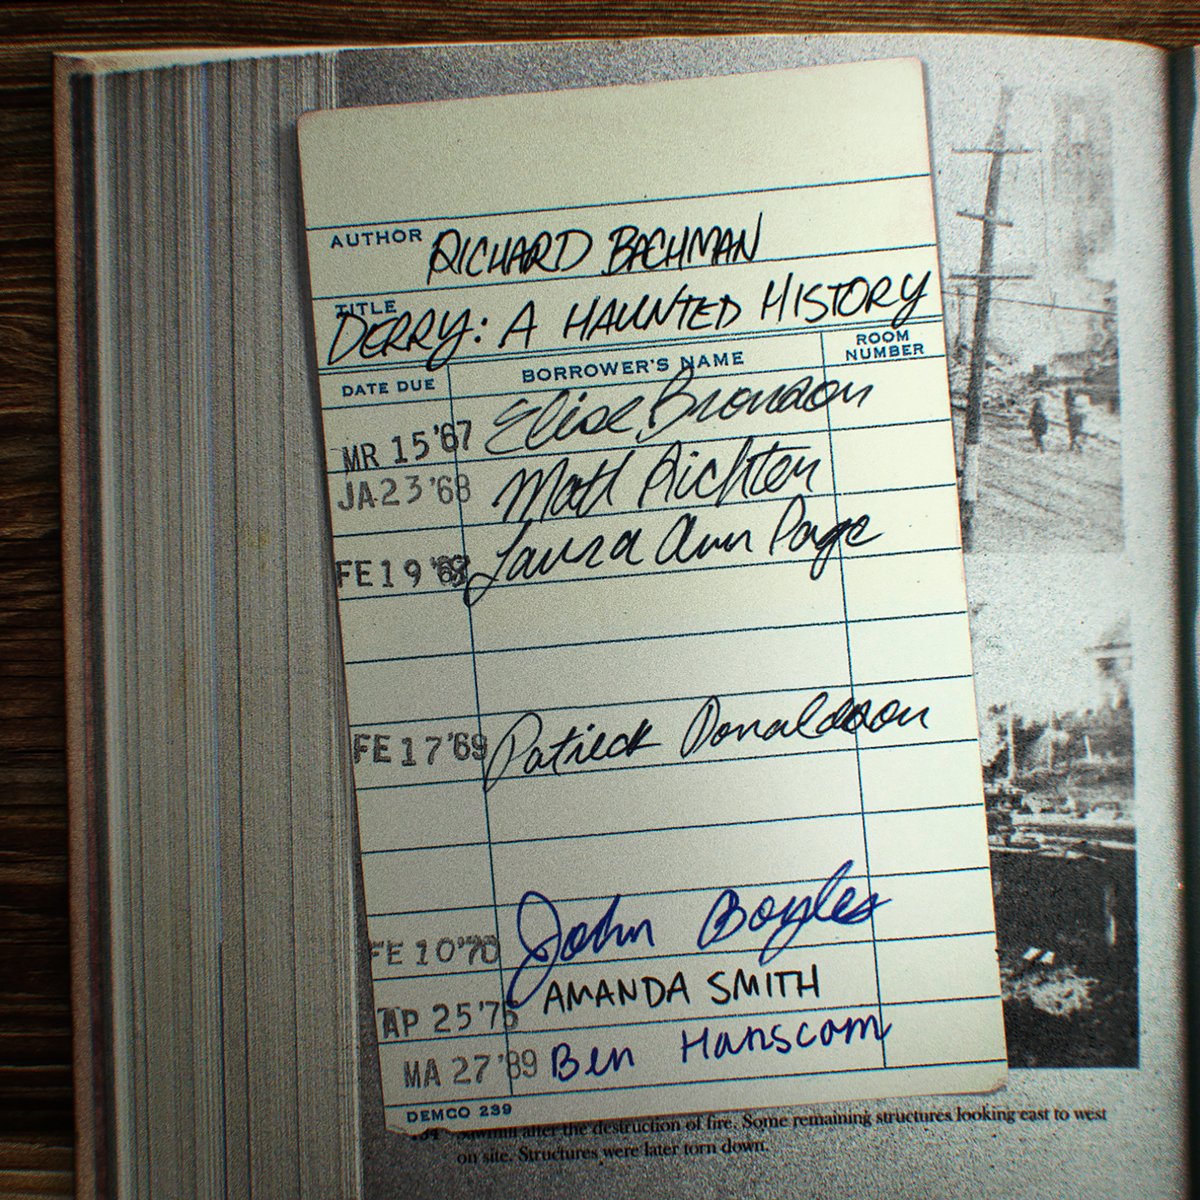 AUTHOR RICHARD BACHMAN
TITLE
DERRY: A HAUNTED HISTORY
DATE DUE BORROWER'S NAME ROOM NUMBER
MR 15 '67 Elise Brondon
JA 23 '68 Matt Richten
FE 19 Laura Ann Page
FE 17 '69 Patrick Donaldson
FE 10 '70 John Boyles
AP 25 '75 AMANDA SMITH
MA 27 '89 Ben Hanscom
DEMCO 239
after the destruction of fire. Some remaining structures looking east to west
on site. Structures were later torn down.